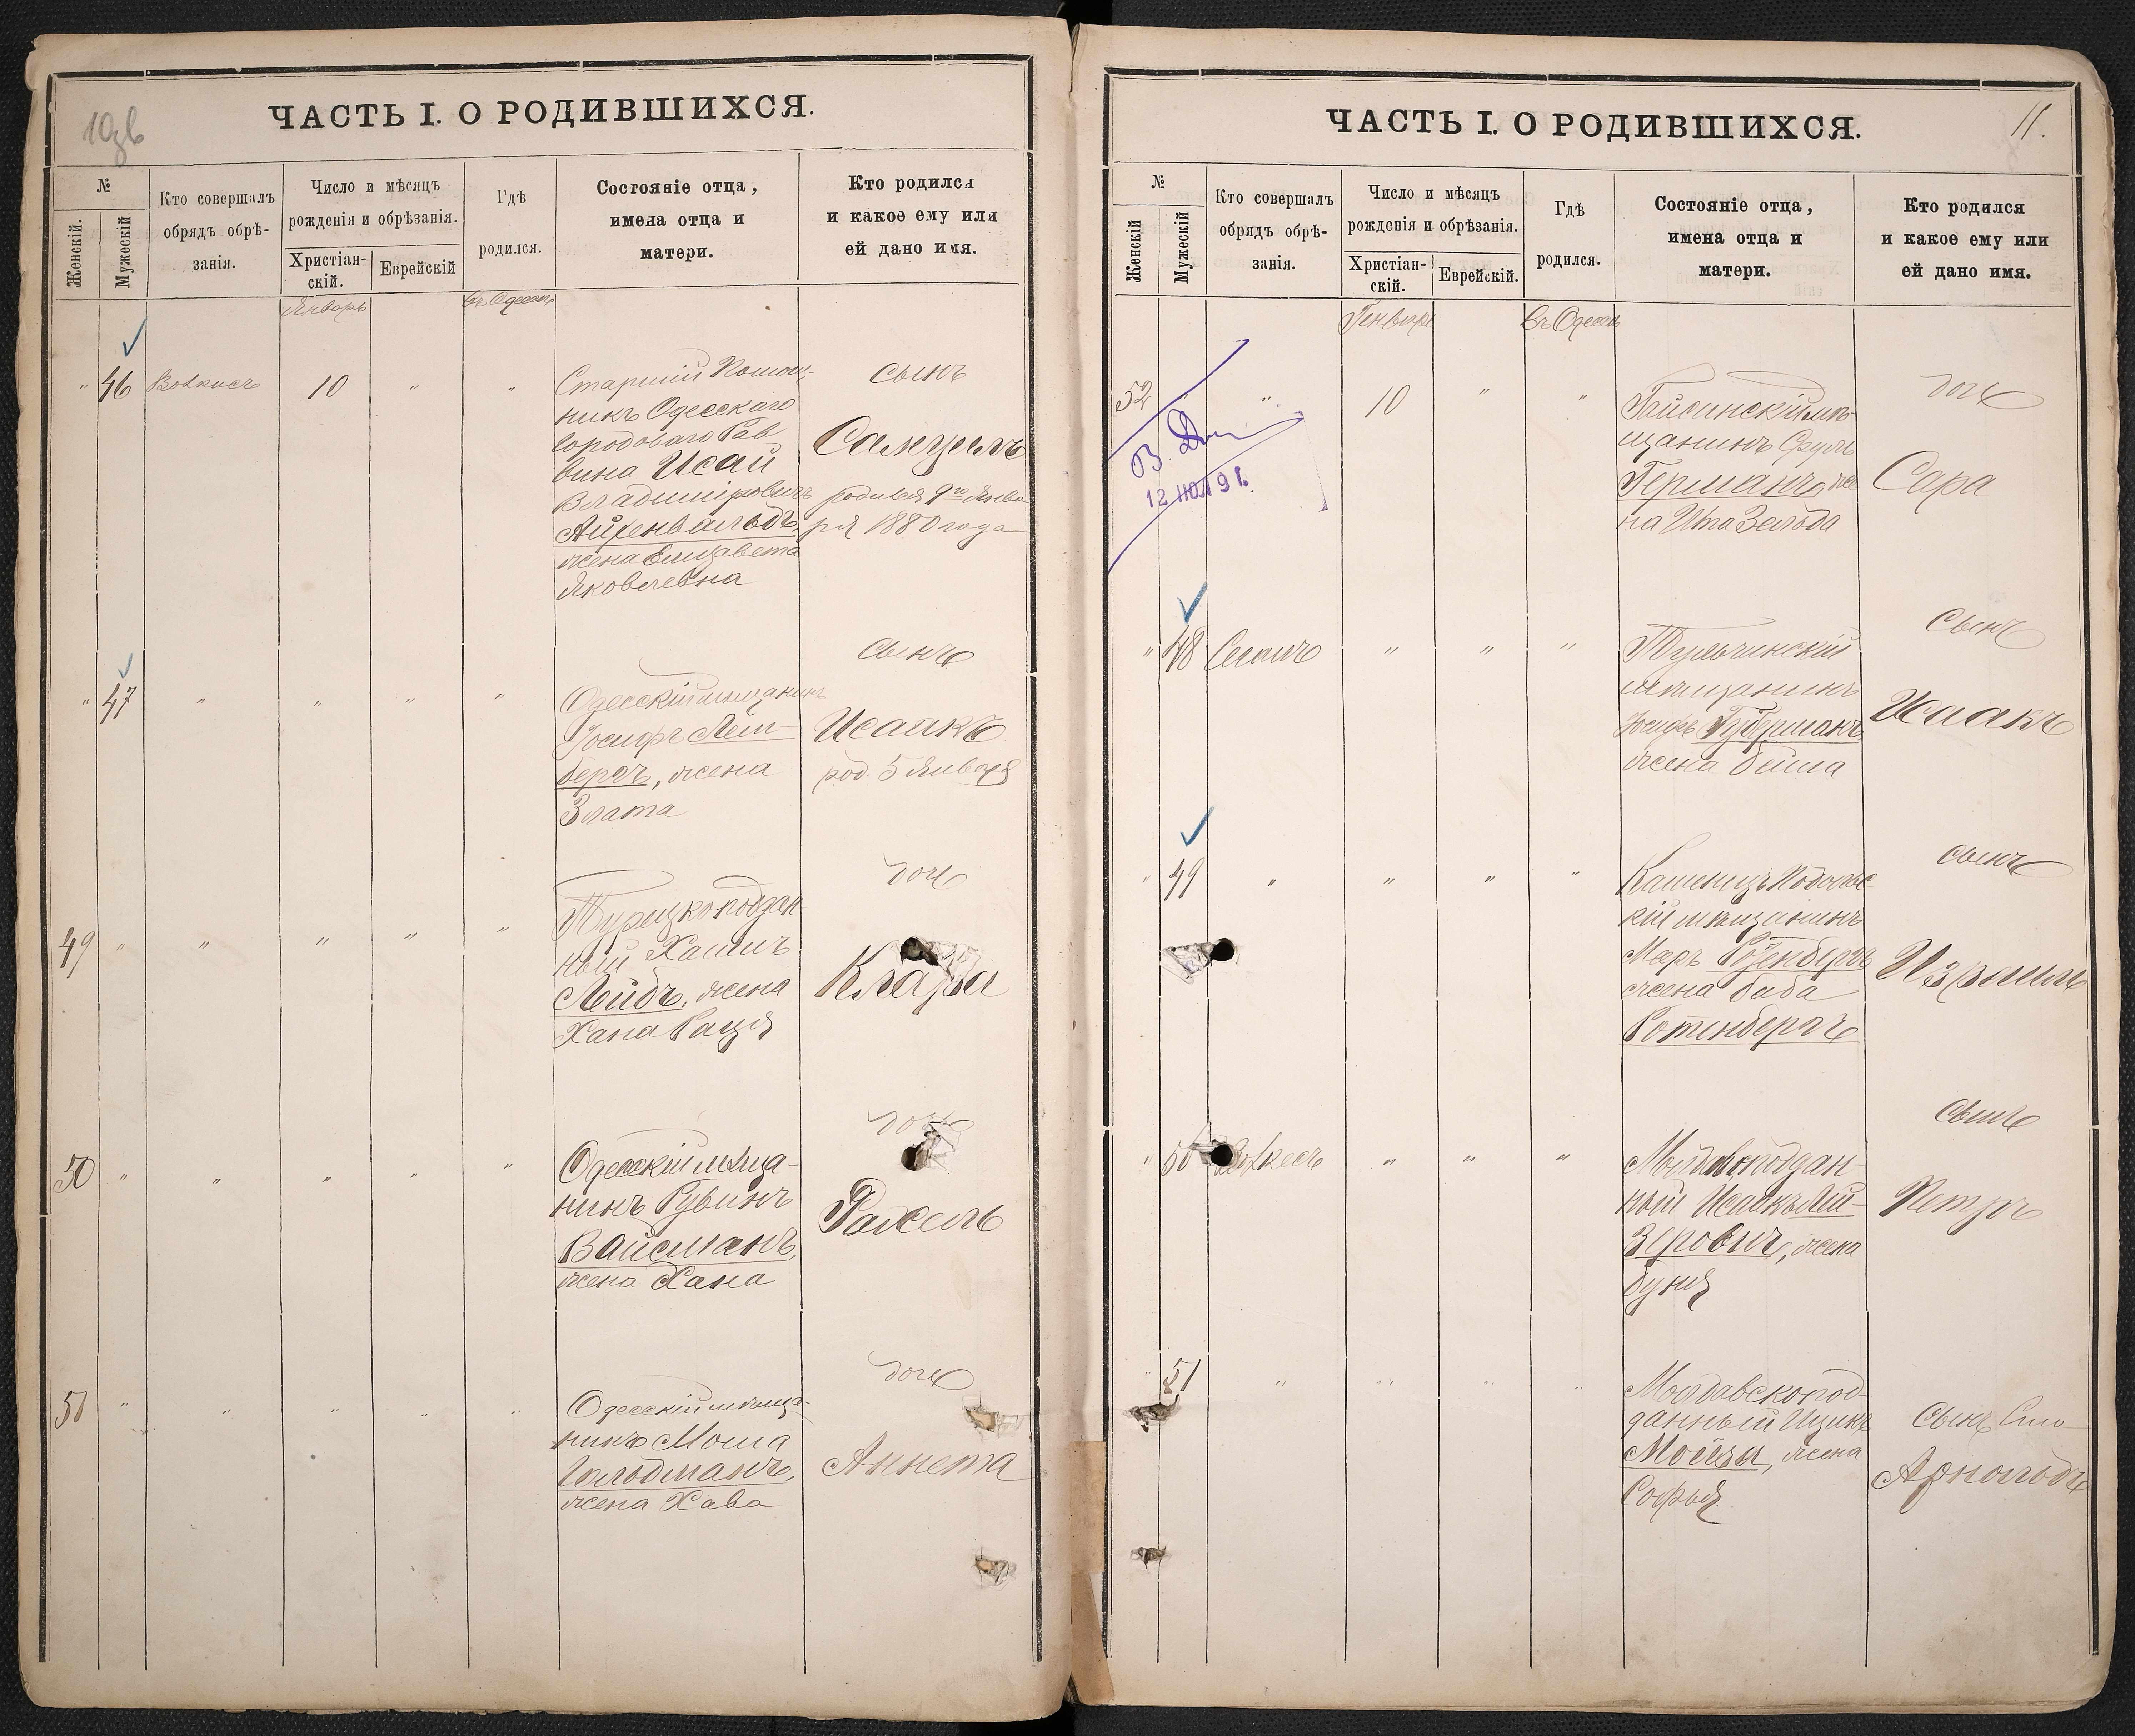 10об
ЧАСТЬ I. О РОДИВШИХСЯ.
№
Женскій.
Мужескій
Кто совершалъ
обрядъ обрѣ-
занія.
Число и мѣсяцъ
рожденія и обрѣзанія.
Христіан-
скій.
Еврейскій
Гдѣ
родился.
Состояніе отца,
имена отца и
матери.
Кто родился
и какое ему или
ей дано имя.
Январь
въ Одессѣ
" 46
10 " "
Старшій Помощ-
никъ Одесскаго
городоваго Рав
вина Исай
Владиміровичъ
Айхенвальдъ,
жена Елизавета
Яковлевна
сынъ
Самуилъ
родился 9го Янва
ря 1880 года
" 47 " " " "
Одесскій мѣщанинъ
Іосифъ Лем-
бергъ, жена
Злата
сынъ
Исаакъ
род. 5 Января
49 " " " " "
Турецкоподдан-
ный Хаимъ
Лейбъ, жена
Хана
дочь
Клара
50 " " " " "
Одесскій мѣща-
нинъ Рувинъ
Вайсманъ,
жена Хана
дочь
Рахель
51 " " " " "
Одесскій мѣща-
нинъ Моша
Гольдманъ,
жена Хава
дочь
Аннета
ЧАСТЬ I. О РОДИВШИХСЯ.
11.
№
Женскій
Мужескій
Кто совершалъ
обрядъ обрѣ-
занія.
Число и мѣсяцъ
рожденія и обрѣзанія.
Христіан-
скій.
Еврейскій.
Гдѣ
родился.
Состояніе отца,
имена отца и
матери.
Кто родился
и какое ему или
ей дано имя.
Генварь
въ Одессѣ
52 " 10 " "
12 ИЮЛ 91.
Гайсинскій мѣ-
щанинъ Сруль
Германъ, же
на Ита Зельда
дочь
Сара
" 48 " " "
Тульчинскій
мѣщанинъ
Іосифъ Губерманъ
жена
сынъ
Исаакъ
" 49 " " " "
Каменецъ Подольс
кій мѣщанинъ
Розенбергъ
жена Баба
Ротенбергъ
сынъ
Израиль
" 50 " " "
Молдавоподдан-
ный Исаакъ Лей-
зеровичъ, жена
Буня
сынъ
Петръ
51 " " " "
Молдавскопод-
данный Ицикъ
Мойзы, жена
Софья
Сынъ
Арнольдъ